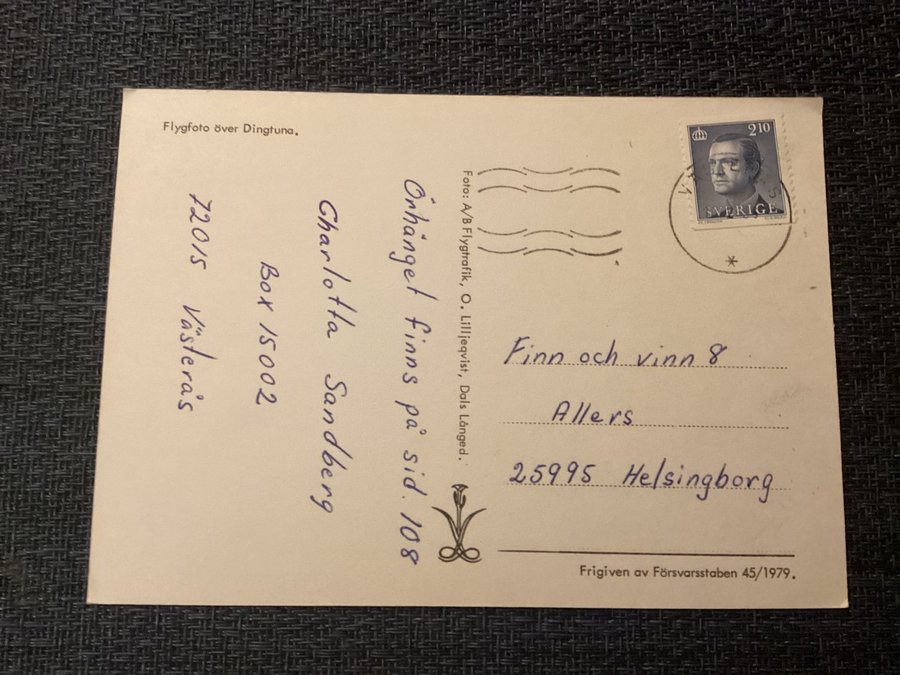 Flygfoto över Dingtuna.
Örhänget finns på sid. 108
Charlotta Sandberg
Box 15002
72015 Västerås
Foto: A/B Flygtrafik, O. Lilljeqvist, Dals Långed.
210
SVERIGE
Finn och vinn 8
Allers
25995 Helsingborg
Frigiven av Försvarsstaben 45/1979.